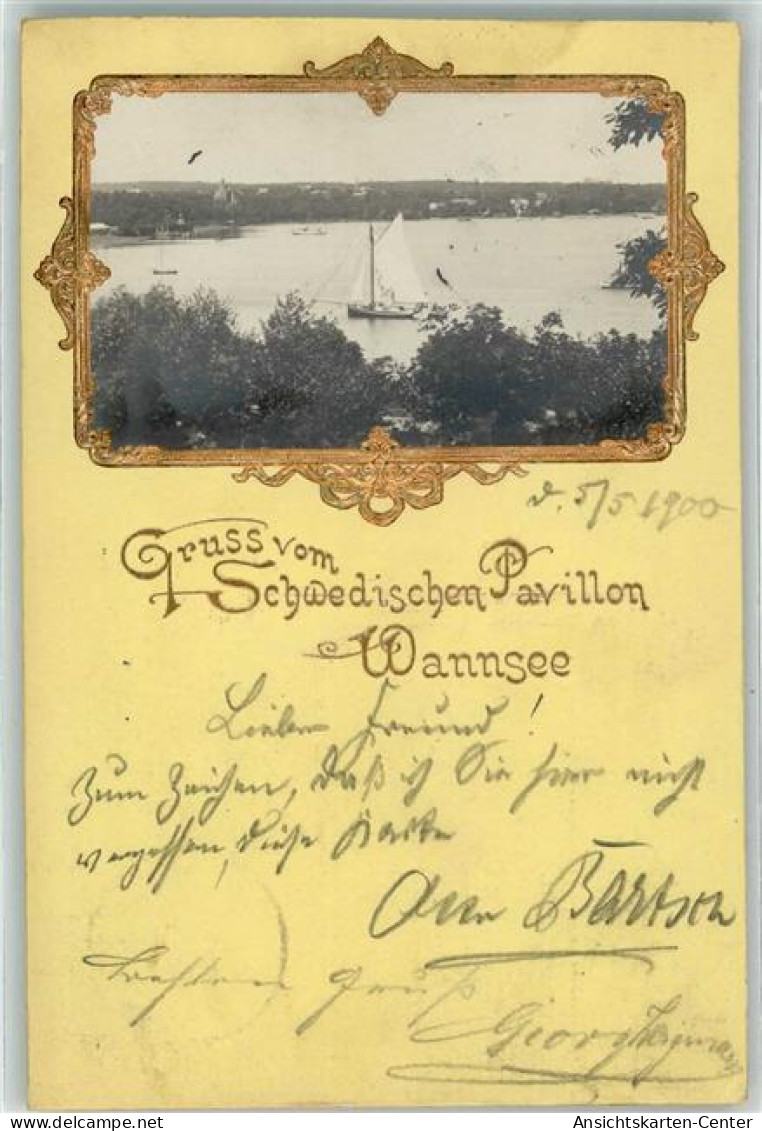 d. 5/5 1900
Gruss vom
Schwedischen Pavillon
Wannsee
Lieber Freund!
Zum Zeichen, daß ich Sie hier nicht
vergessen, diese Karte
Bartsch
Besten Gruß
Georg
Ansichtskarten-Center